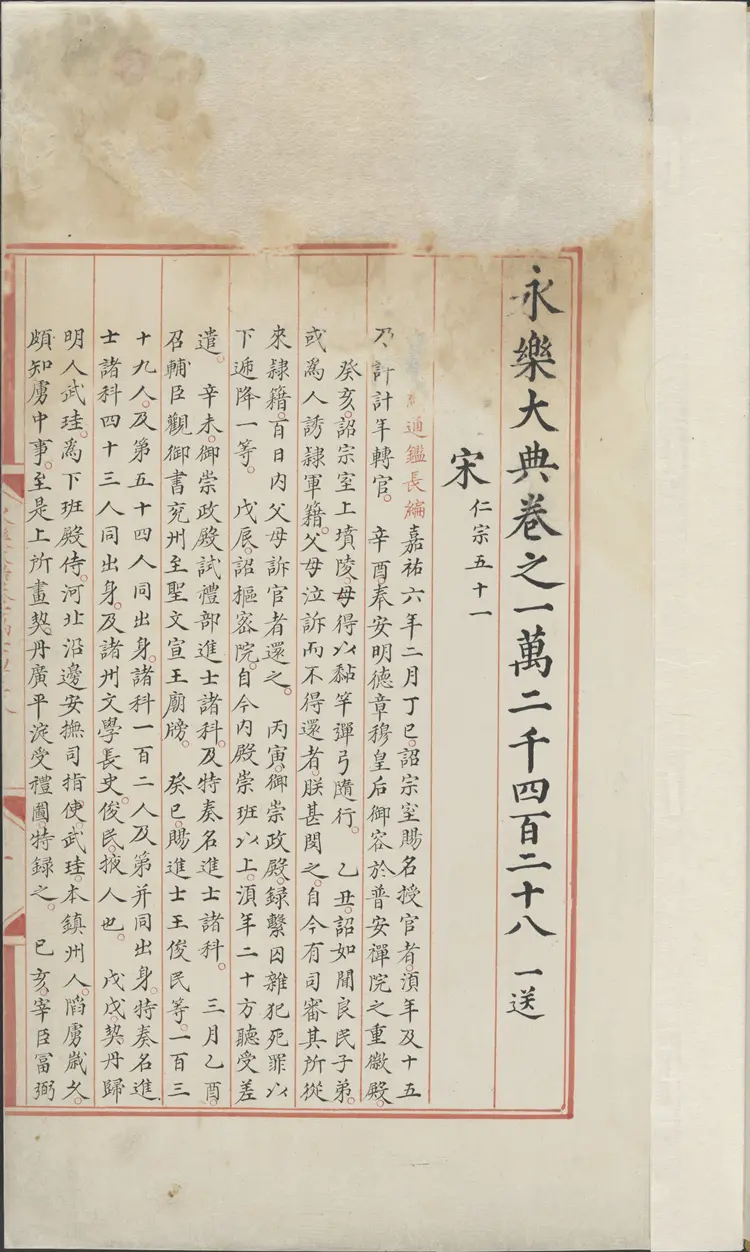 永樂大典卷之一萬二千四百二十八 一送
宋 仁宗五十一
通鑑長編嘉祐六年二月丁巳。詔宗室賜名授官者。湏年及十五
乃計計年轉官。 辛酉。奉安明德章穆皇后御容於普安禪院之重徽殿。
癸亥。詔宗室上墳陵。毋得以黏竿彈弓隨行。 乙丑。詔如聞良民子弟。
或為人誘隸軍籍。父母泣訴而不得還者。朕甚閔之。自今有司審其所從
來隸籍。百日内父母訴官者還之。 丙寅。御崇政殿。録繫囚雜犯死罪以
下遞降一等。 戊辰。詔樞密院。自今内殿崇班以上。湏年二十方聽受差
遣。 辛未。御崇政殿試禮部進士諸科。及特奏名進士諸科。 三月乙酉。
召輔臣觀御書兖州至聖文宣王廟牓。 癸巳。賜進士王俊民等。一百三
十九人。及第五十四人同出身。諸科一百二人及第并同出身。特奏名進
士諸科四十三人同出身。及諸州文學長史。俊民。掖人也。 戊戌。契丹歸
明人武珪。為下班殿侍。河北沿邊安撫司指使。武珪。本鎮州人。䧟虜歲久。
頗知虜中事。至是上所畫契丹廣平淀受禮圖。特録之。 己亥。宰臣冨弼